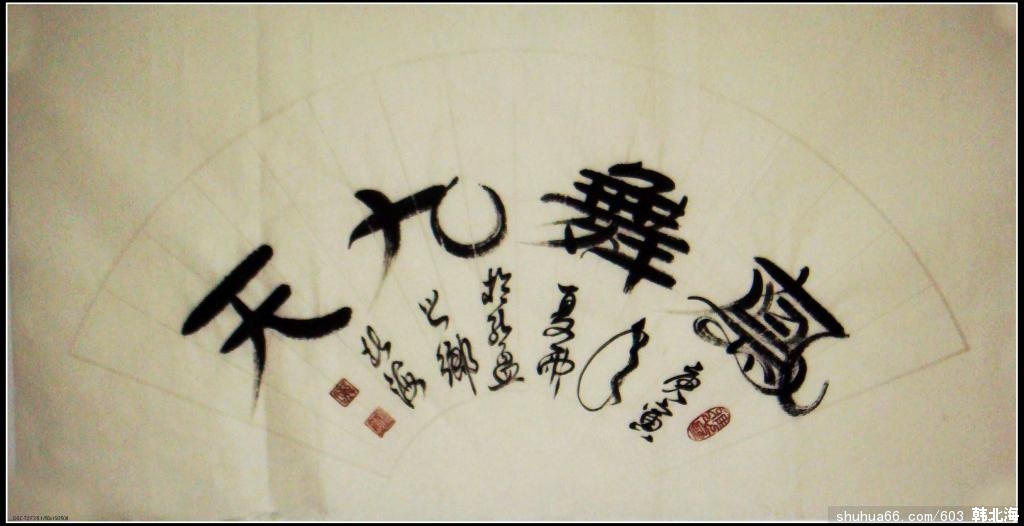 鳳舞九天
年
夏雨
於孔孟
之鄉
北海
shuhua66.com/603 韩北海